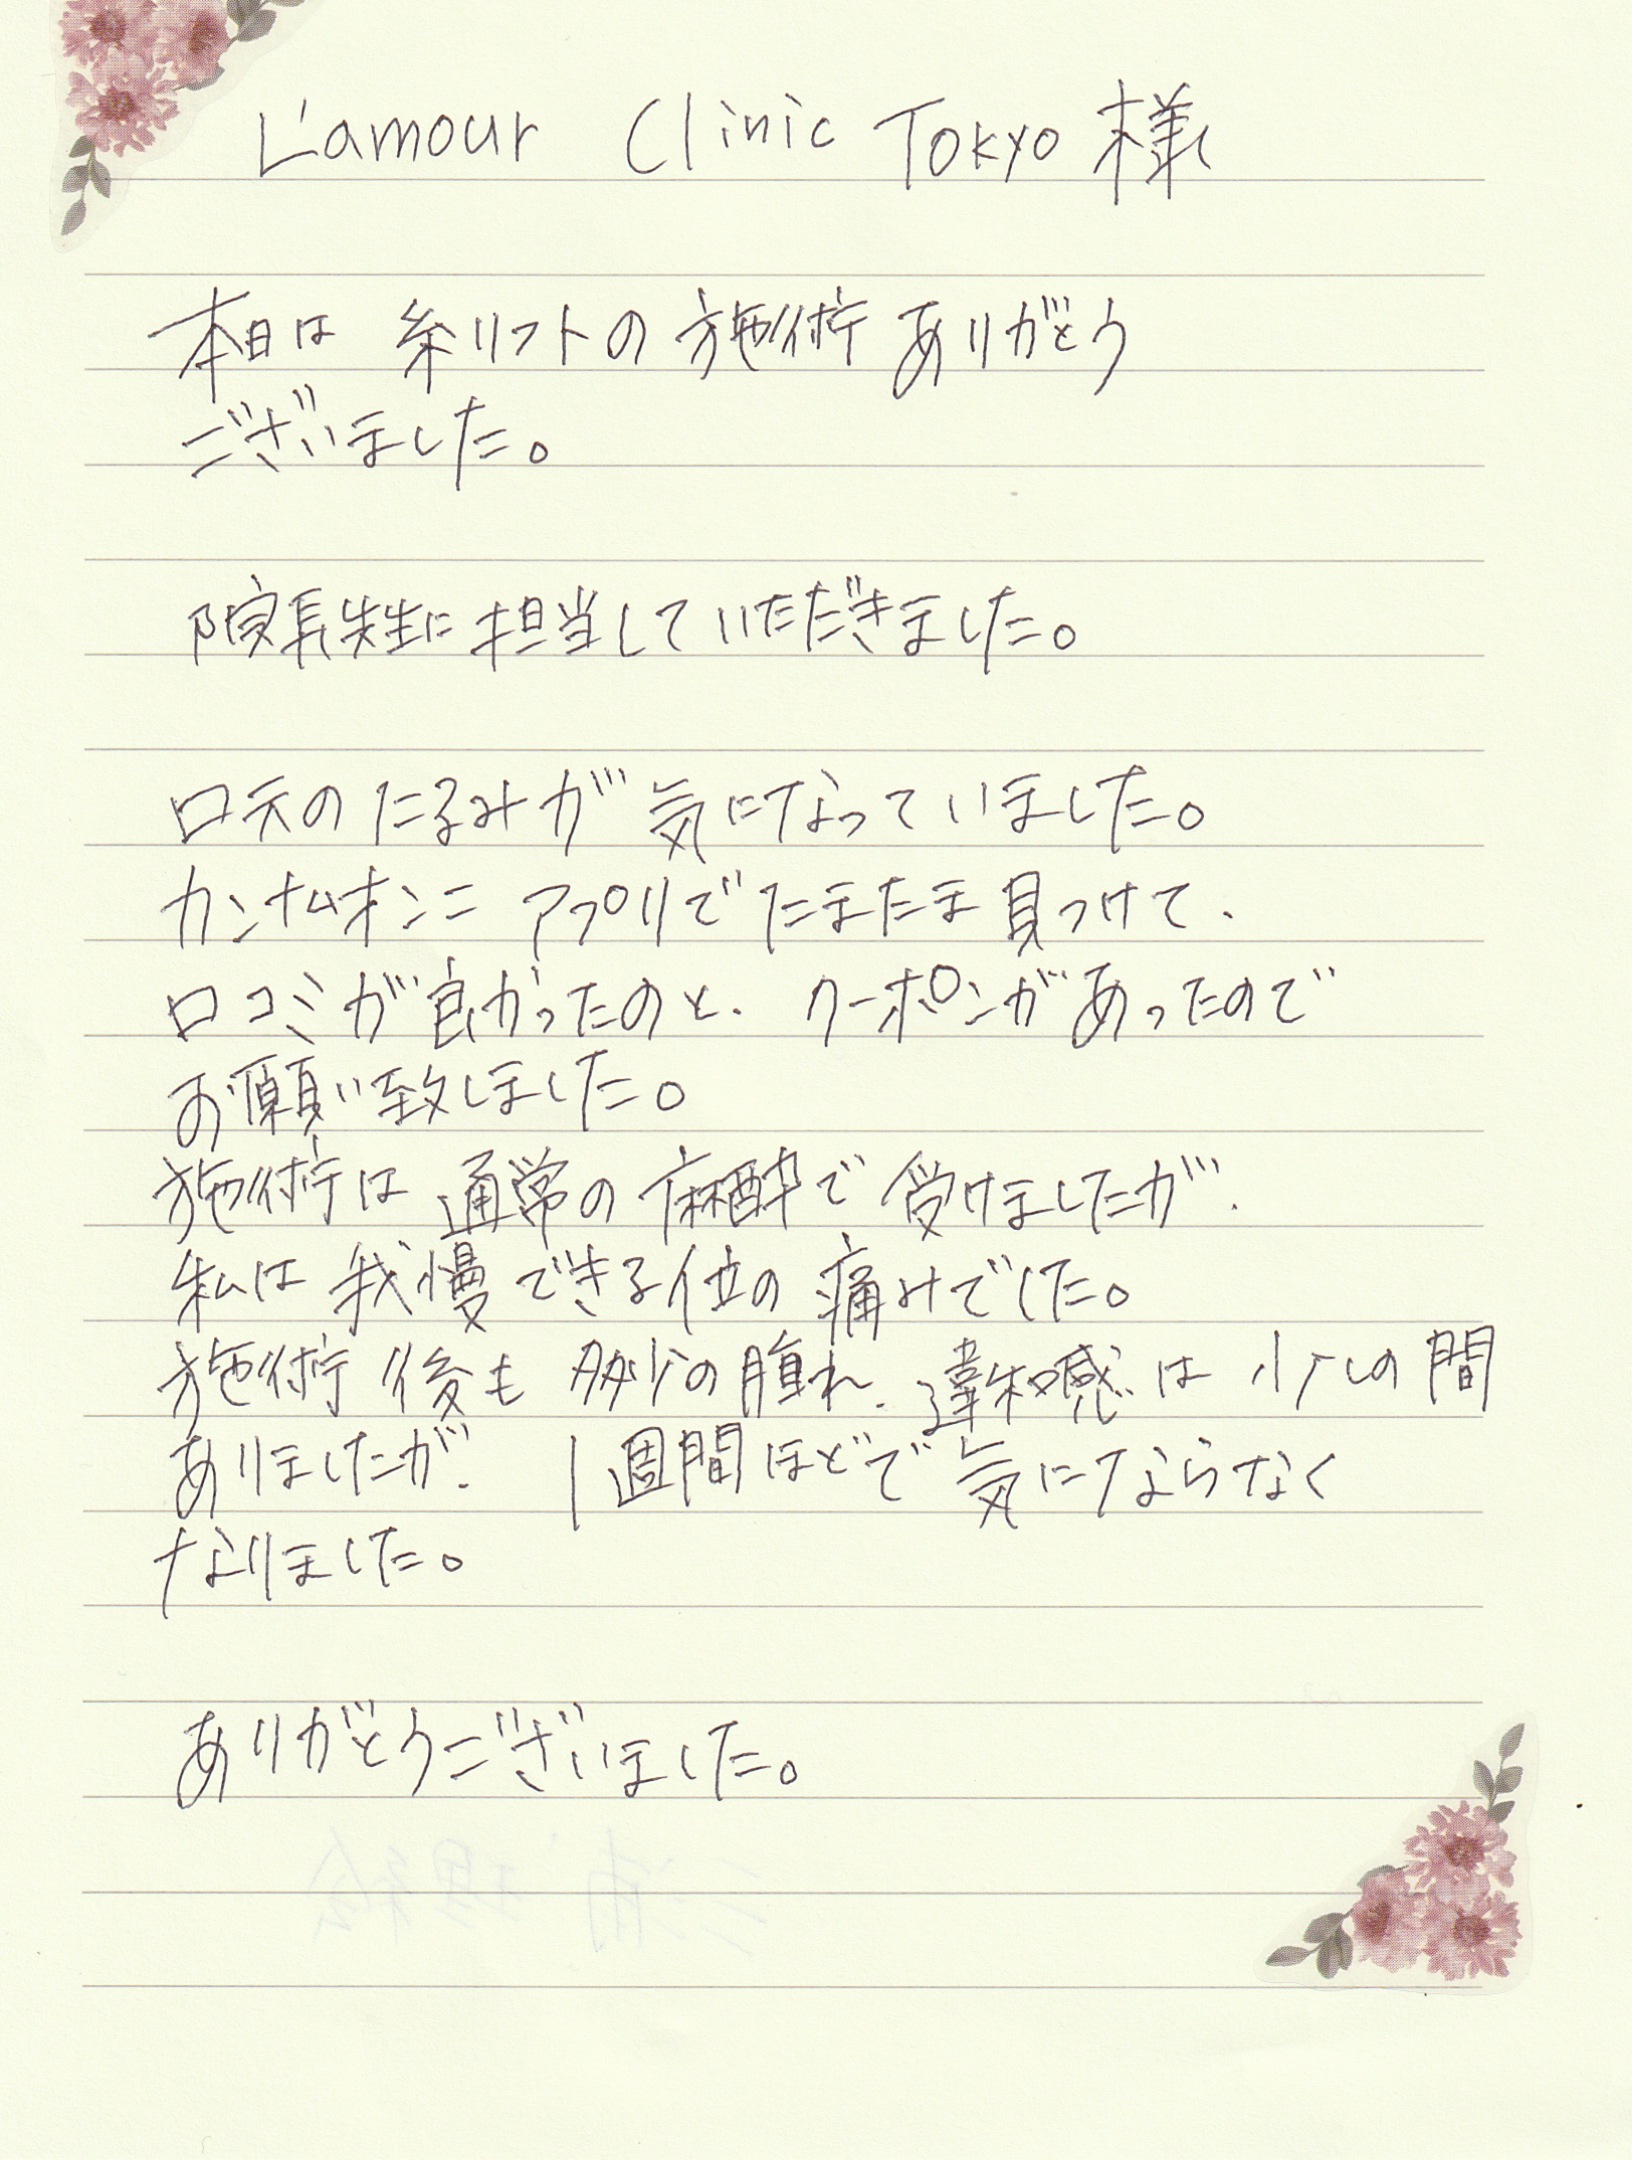 L'amour Clinic Tokyo 様
本日は 糸リフトの 施術 ありがとう
ございました。
院長先生に 担当していただきました。
口元のたるみが 気になっていました。
カンナムオンニ アプリでたまたま見つけて、
口コミが良かったのと、クーポンがあったので
お願い致しました。
施術は 通常の麻酔で受けましたが、
私は 我慢できる位の 痛みでした。
施術後も 多少の腫れ、違和感は 少しの間
ありましたが、 1週間ほどで気にならなく
なりました。
ありがとうございました。